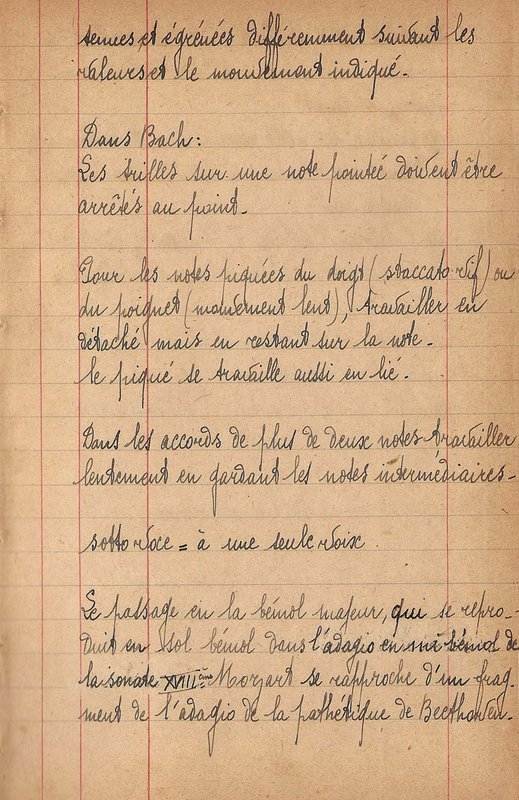 tenues et égrénées différemment suivant les
valeurs et le mouvement indiqué.
Dans Bach:
Les trilles sur une note pointée doivent être
arrêtés au point.
Pour les notes piquées du doigt (staccato vif) ou
du poignet (mouvement lent), travailler en
détaché mais en restant sur la note.
le piqué se travaille aussi en lié.
Dans les accords de plus de deux notes travailler
lentement en gardant les notes intermédiaires-
sotto voce = à une seule voix.
Le passage en la bémol majeur, qui se repro-
duit en sol bémol dans l'adagio en mi bémol de
la sonate XVIIIème Morzart se rapproche d'un frag-
ment de l'adagio de la pathétique de Beethoven.